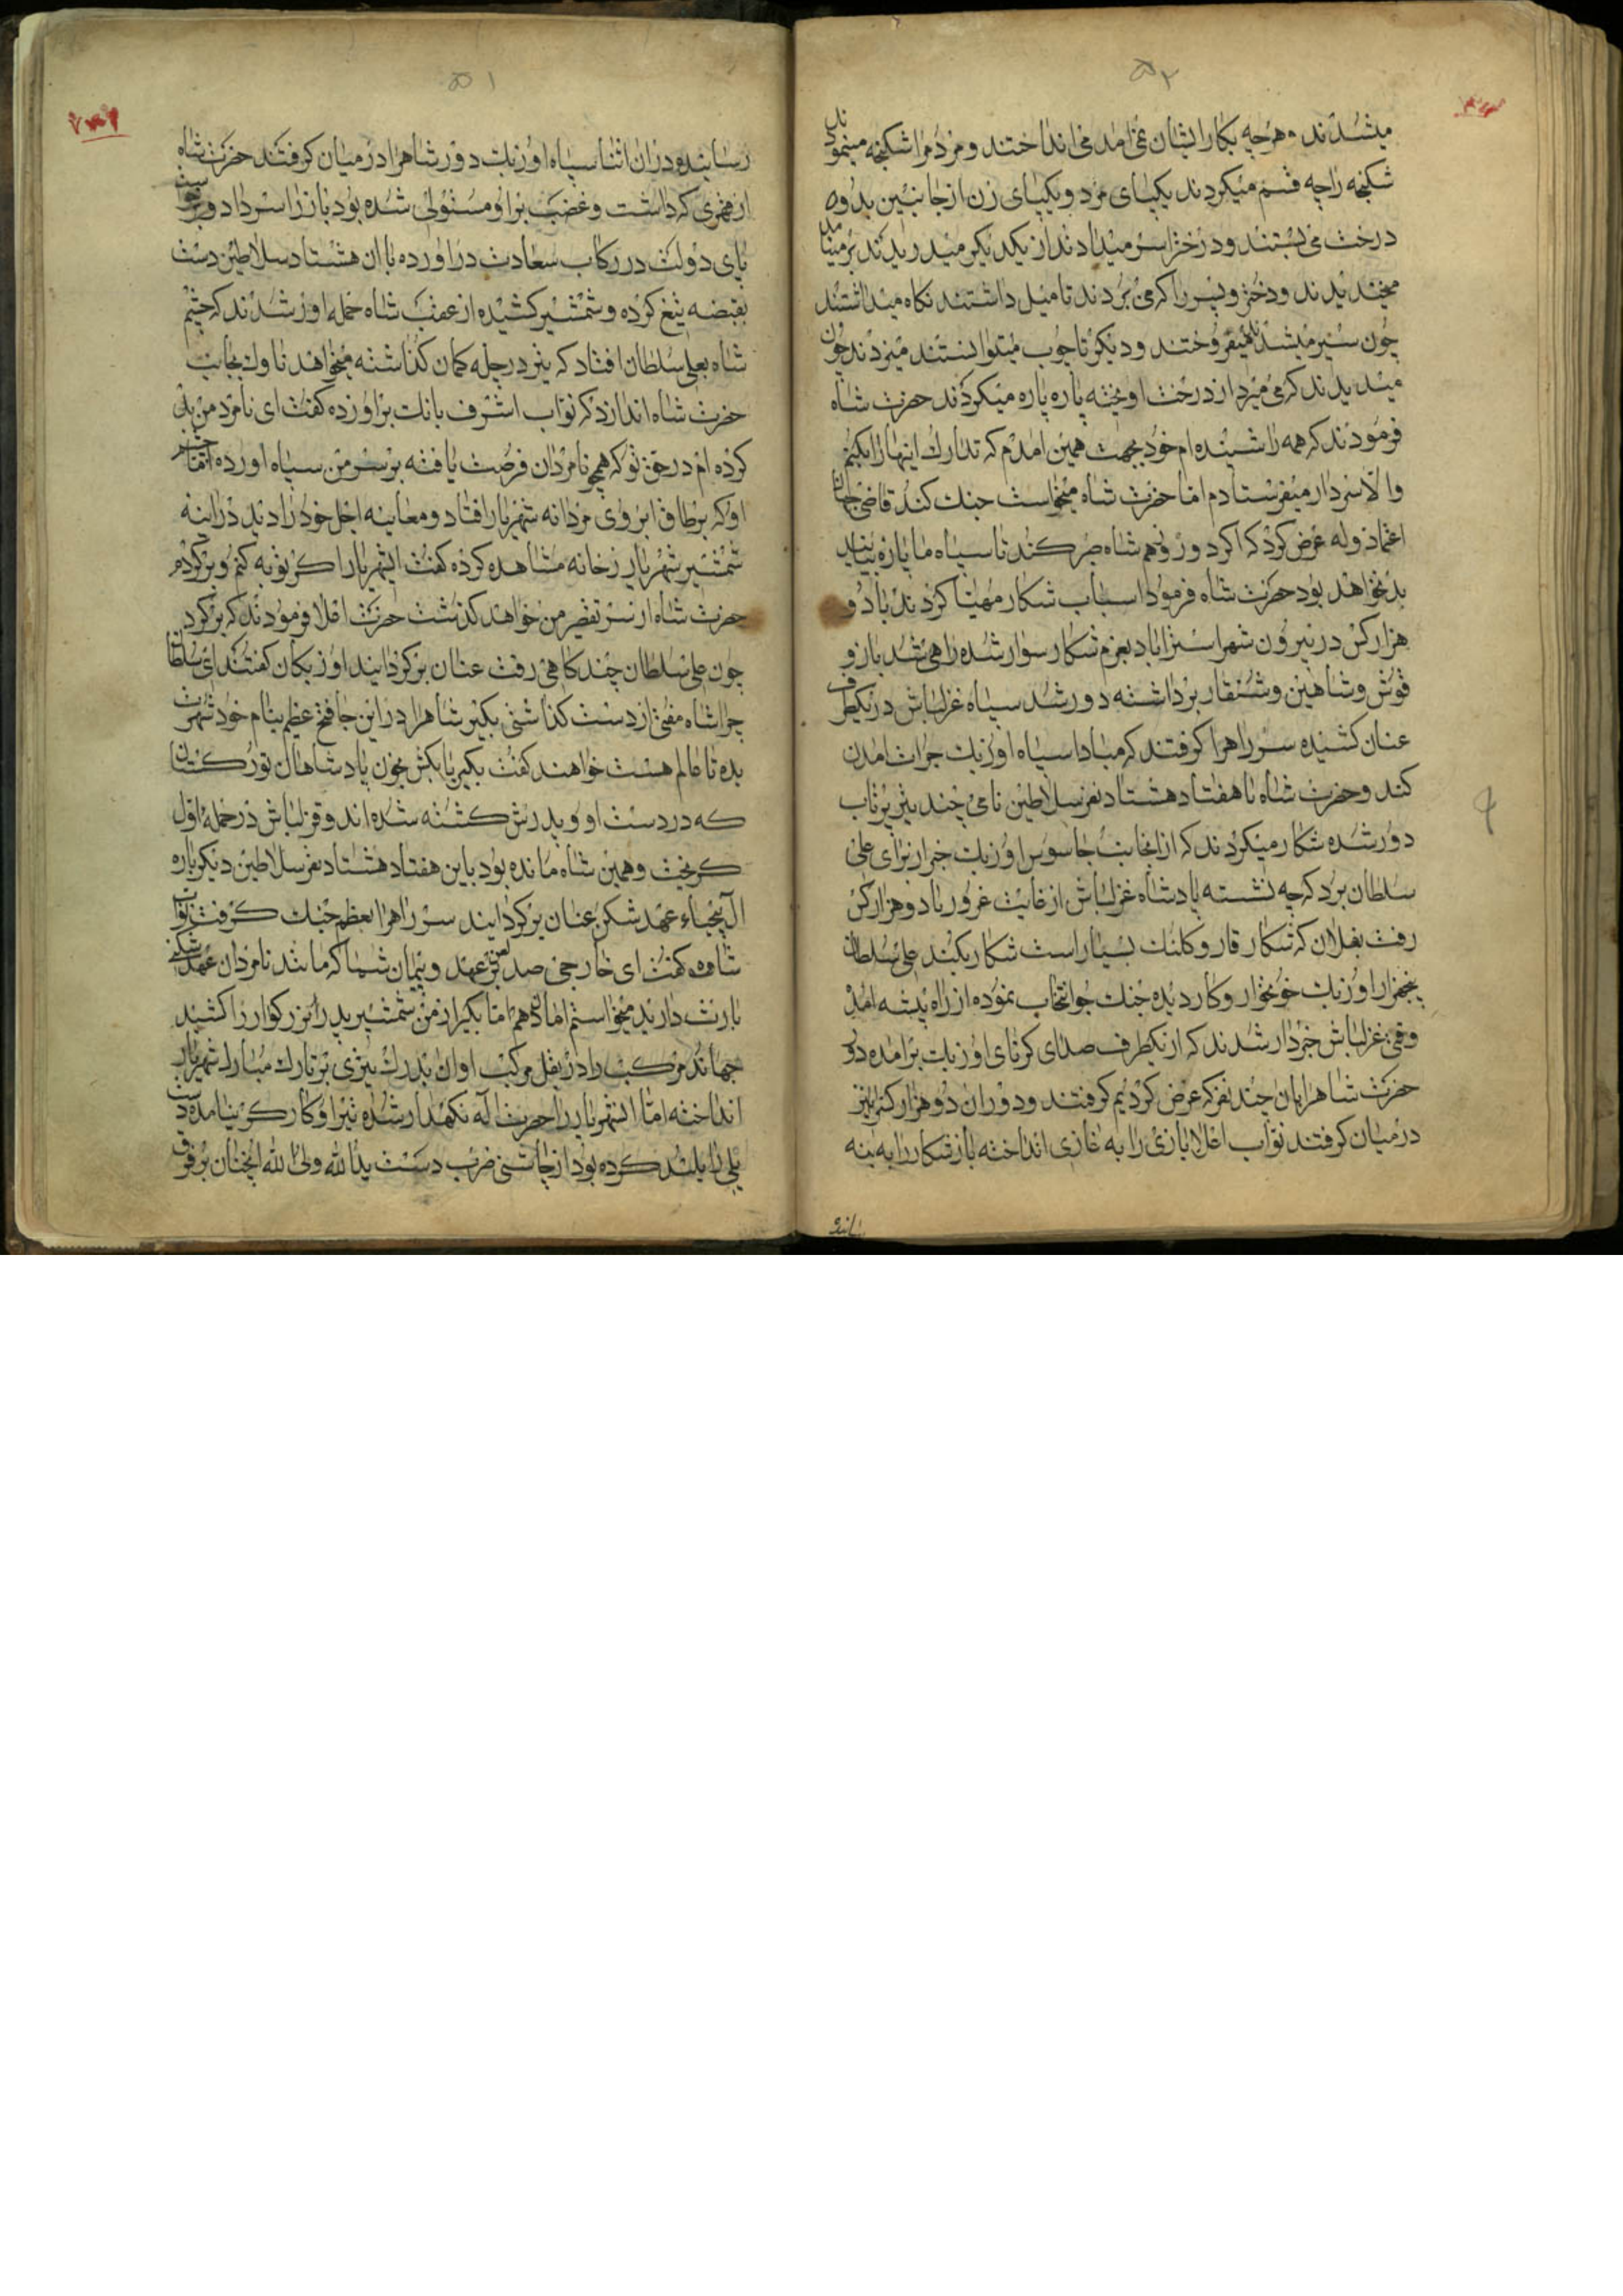 ۵۲
میشدند و هرچه بکار ایشان نمی آمد می انداختند و مردم را شکنجه مینمودند
شکنجه را چه قسم میکردند یکپای مرد و یکپای زن از جانبین بدو
درخت می بستند و درخت را سر میدادند از یکدیگر میدریدند بر مینامد
میخندیدند و دختر و پسر را که می بردند تا میل داشتند نگاه میداشتند
چون سیر میشدند میفروختند و دیگر تا چوب میتوانستند میزدند چون
میدیدند که می میرد از درخت اویخته پاره پاره میکردند حضرت شاه
فرمودند که همه را شنیده ام خود بجهت همین امدم که تدارک اینها را بکنم
والا سردار میفرستادم اما حضرت شاه میخواست جنک کند قاضی جهان
اعتماد وله عرض کرد که اکر دو روزهم شاه صبر کند تا سپاه ما پاره بیایند
بد نخواهد بود حضرت شاه فرمود اسباب شکار مهیا کردند با دو
هزار کس در بیرون شهر استراباد بعزم شکار سوار شده راهی شد باز و
قوش و شاهین و شنقار برداشته دور شد سپاه غزلباش در یکطرف
عنان کشیده سر راه را کرفتند که مبادا سپاه اوزبک جرات امدن
کند و حضرت شاه با هفتاد هشتاد نفر سلاطین نامی چند تیر پرتاب
دور شده شکار میکردند که از انجانب جاسوس اوزبک خبر از برای علی
سلطان برد که چه نشسته پادشاه غزلباش از غایت غرور با دو هزار کس
رفت بفلان که شکار قار و کلنک بسیار است شکار بکند علی سلطان
پنجهزار اوزبک خونخوار و کار دیده جنک جو انتخاب نموده از راه بیشه امد
وقتی غزلباش خبردار شدند که از یکطرف صدای کرنای اوزبک برامده دو
حضرت شاه را بان چند نفر که عرض کردیم کرفتند و دوران دو هزار کس را نیز
در میان کرفتند نواب اعلا بازی را به غازی انداخته باز شکار را به بنه
رسانیده
۵۱
رسانیده دران اثنا سپاه اوزبک دور شاه را در میان کرفتند حضرت شاه
از قهری که داشت و غضب بر او مستولی شده بود باز را سر داد و برخواست
پای دولت در رکاب سعادت دراورده با ان هشتاد سلاطین دست
بقبضه تیغ کرده و شمشیر کشیده از عقب شاه حمله اور شدند که چشم
شاه بعلی سلطان افتاد که تیر در چله کمان کذاشته میخواهد ناوک بجانب
حضرت شاه اندازد که نواب اشرف بانک براورده کفت ای نامرد من بد
کرده ام در حق تو که همچو نامردان فرصت یافته بر سر من سپاه اورده
او که بر طاق ابروی مردانه شهریار افتاد و معاینه اجل خود را دید در اینه
شمشیر شهریار زخانه مشاهده کرده کفت ایشهریار اکر توبه کنم و برکردم
حضرت شاه از سر تقصیر من خواهد کذشت حضرت اعلا فرمودند که برکرد
چون علی سلطان چند کامی رفت عنان برکردانید اوزبکان کفتند ای سلطان
چرا شاه مفتی از دست کذاشتی بکیر شاه را در این جا فتح عظیم بنام خود شهرت
بده تا عالم هست خواهند کفت بکیر یا بکش بخون پادشاهان تورکستان
که در دست او و پدرش کشته شده اند و قزلباش در حمله اول
کریخت و همین شاه مانده بود باین هفتاد هشتاد نفر سلاطین دیکر باره
ال بیحیاء عهد شکن عنان برکردانید سر راه را بعظم جنک کرفت نواب
شاه کفت ای خارجی صد لعن بر عهد و پیمان شما که مانند نامردان عهد شکنی
بارث دارید میخواستم امان دهم اما بکیر از من شمشیر پدر بزرکوار را کشید
جهاند مرکب را در بغل مرکب او ان بدرک تیری بر تارک مبارک شهریار
انداخته اما ایشهریار را حضرت اله نکهدار شده تیر او کارکر نیامده دست
یلی را بلند کرده بود از چاشنی ضرب دست یدالله ولی الله انچنان بر فرق